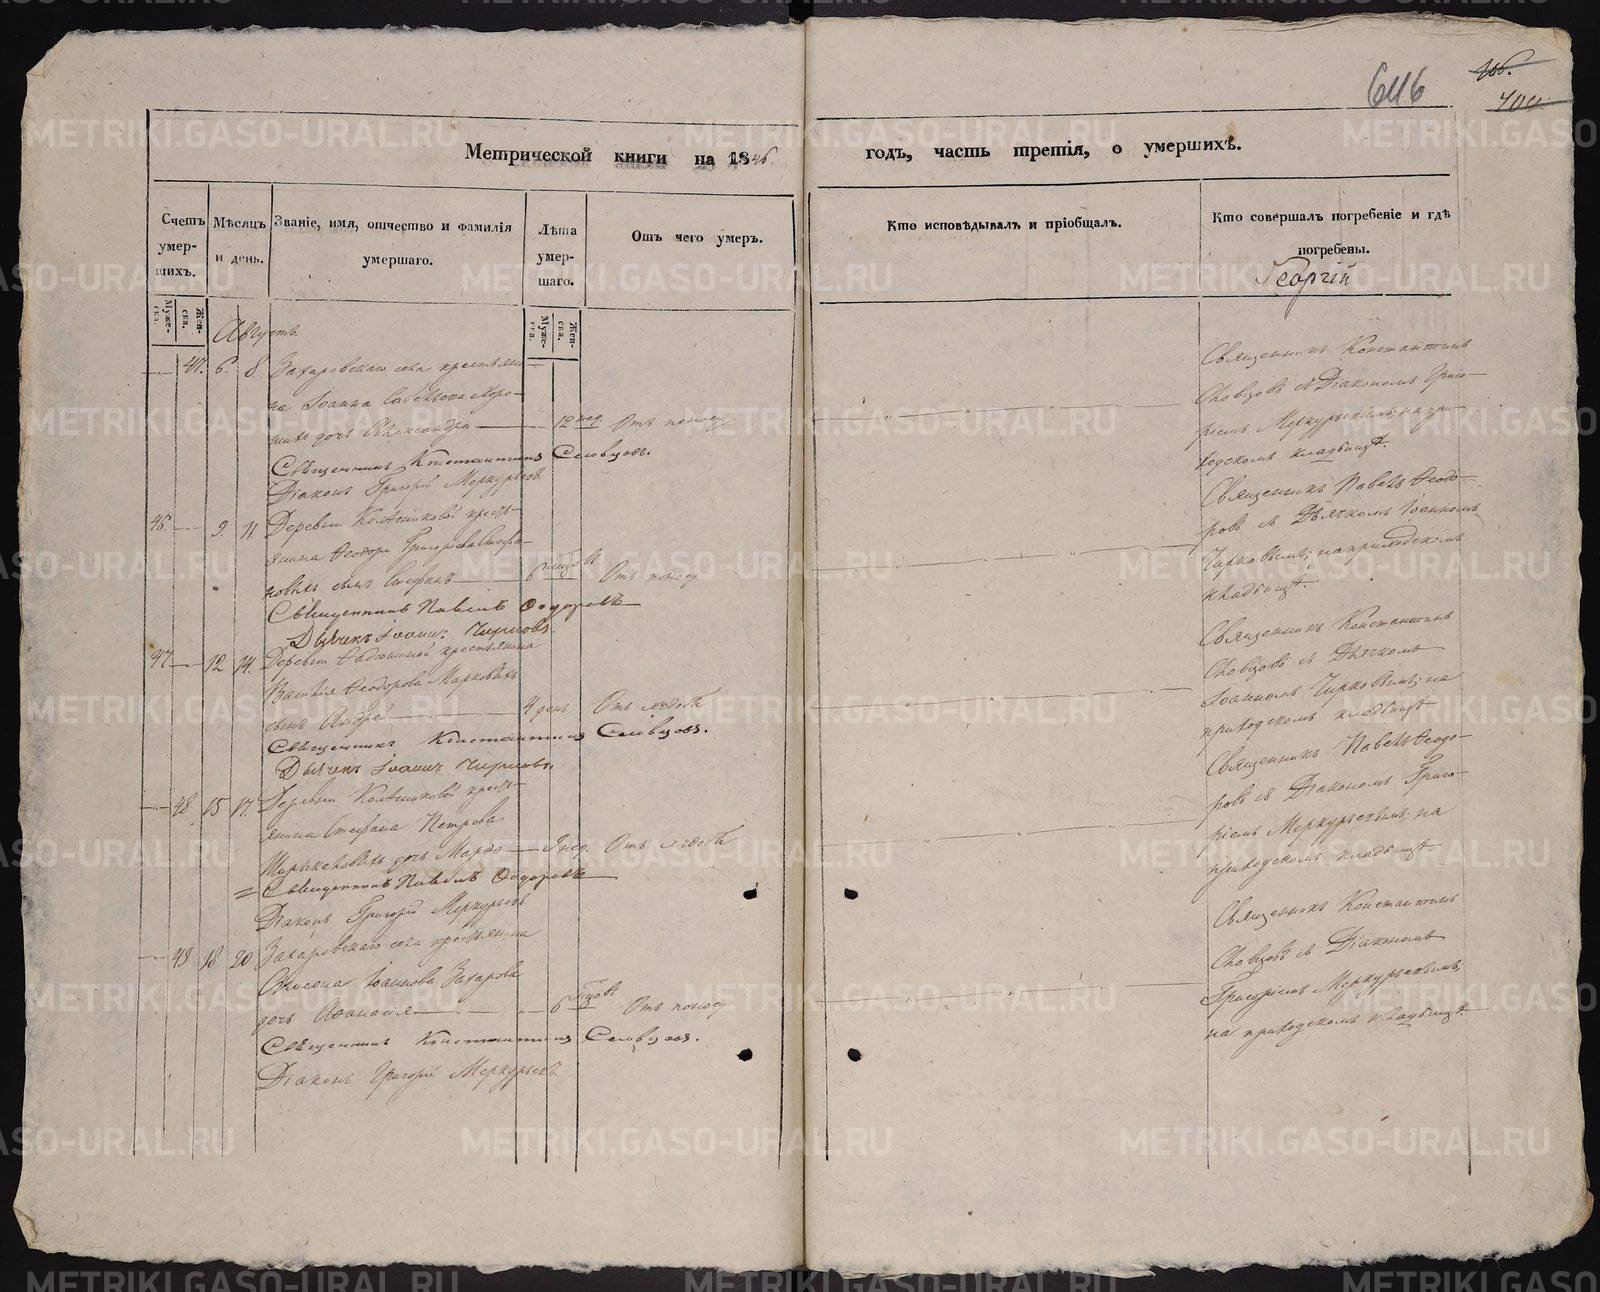 646
466.
700
Метрической книги на 1846.
годъ, часть третія, о умершихъ.
Счетъ умер-шихъ.
Мѣсяцъ и день.
Званіе, имя, отчество и фамилія умершаго.
Лѣта умер-шаго.
Отъ чего умеръ.
Кто исповѣдывалъ и пріобщалъ.
Кто совершалъ погребеніе и гдѣ погребены.
Георгій
Муже-ска.
Жен-ска.
Муже-ска.
Жен-ска.
Августъ.
47. 6. 8. Захаровскаго села крестьяни-
на Іоанна
дочь Александра 12 нед. Отъ поносу
Священникъ Константинъ Словцовъ.
Діаконъ Григорій Меркурьевъ.
Священникъ Константинъ
Словцовъ съ Діакономъ Григо-
ріемъ Меркурьевымъ; на при-
ходскомъ кладбищѣ.
46. 9. 11. Деревни Колѣсниковой кресть-
янина Ѳеодора Григорьева Стефа-
новыхъ сынъ Стефанъ 6 мцовъ Отъ поносу
Священникъ Павелъ Ѳедоровъ
Дьячекъ Іоаннъ Чирковъ.
Священникъ Павелъ Ѳеодо-
ровъ съ Дьячкомъ Іоанномъ
Чирковымъ; на приходскомъ
кладбищѣ.
47. 12 14. Деревни крестьянина
Василія Ѳеодорова Марковыхъ
сынъ Андрей 4 день Отъ
Священникъ Константинъ Словцовъ.
Дьячекъ Іоаннъ Чирковъ.
Священникъ Константинъ
Словцовъ съ Дьячкомъ
Іоанномъ Чирковымъ; на
приходскомъ кладбищѣ
48. 15 17. Деревни Колѣсниковой кресть-
янина Стефана Петрова
дочь Марѳа нед. Отъ
Священникъ Павелъ Ѳедоровъ
Діаконъ Григорій Меркурьевъ
Священникъ Павелъ Ѳеодо-
ровъ съ Діакономъ Григо-
ріемъ Меркурьевымъ; на
приходскомъ кладбищѣ.
49 18 20 Захаровскаго села крестьянина
Іоаннова Захарова
дочь Аѳанасія 6 мцовъ Отъ поносу
Священникъ Константинъ Словцовъ.
Діаконъ Григорій Меркурьевъ.
Священникъ Константинъ
Словцовъ съ Діакономъ
Григоріемъ Меркурьевымъ;
на приходскомъ кладбищѣ.
METRIKI.GASO-URAL.RU